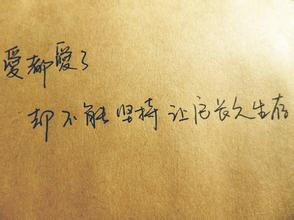 愛都愛了
却不能坚持让它长久生存